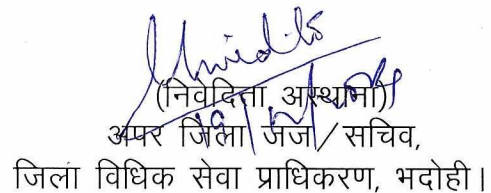 (निवेदिता अस्थाना)
अपर जिला जज / सचिव,
जिला विधिक सेवा प्राधिकरण, भदोही।